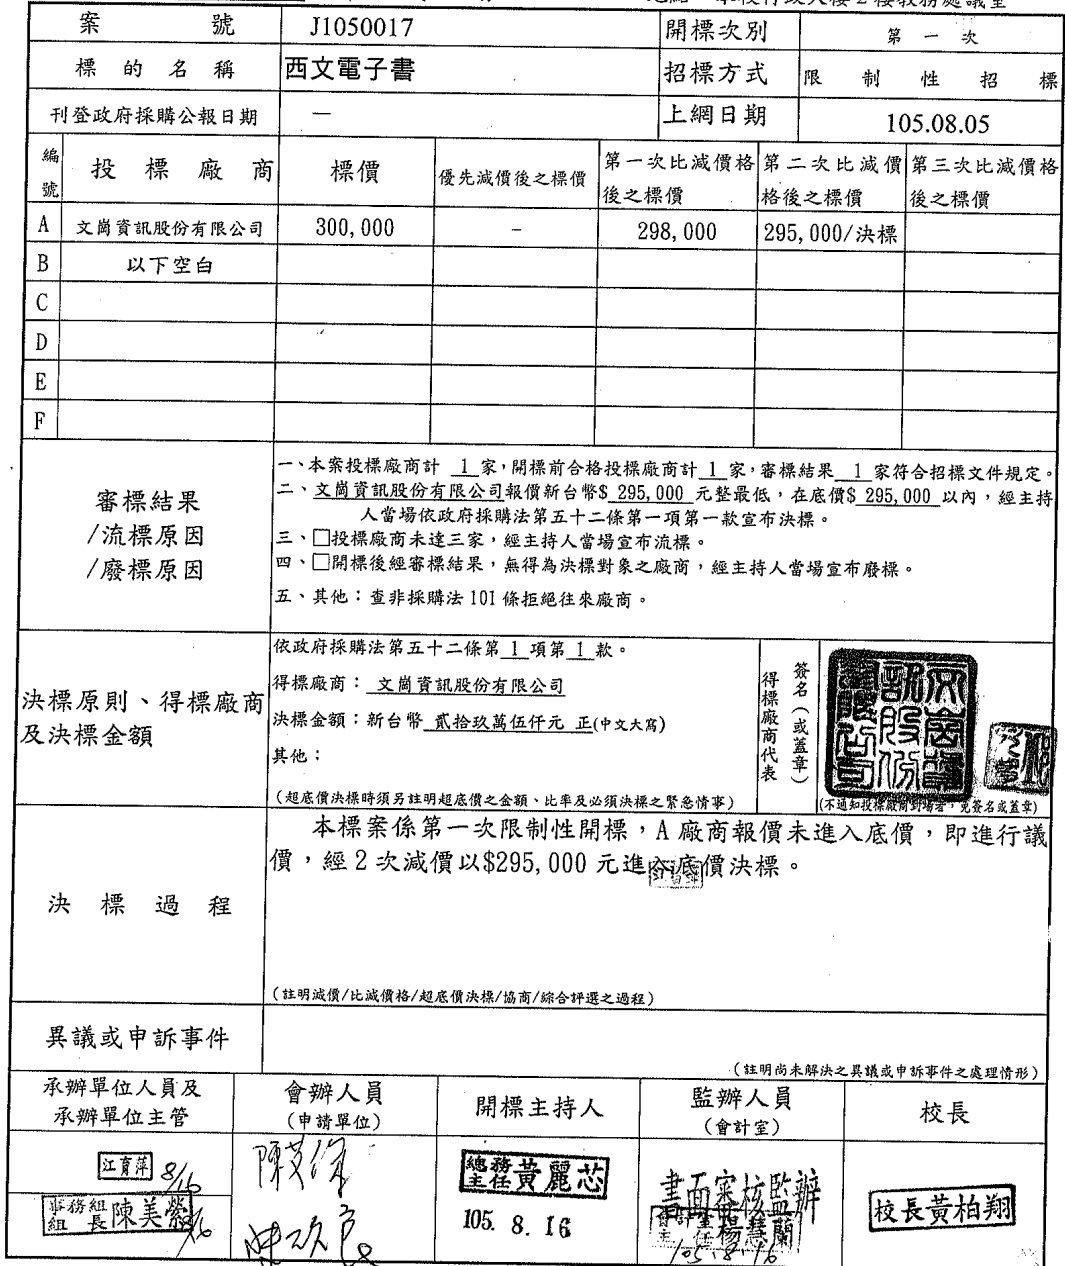 案號 J1050017 開標次別 第一次
標的名稱 西文電子書 招標方式 限制性招標
刊登政府採購公報日期 — 上網日期 105.08.05
編號 投標廠商 標價 優先減價後之標價 第一次比減價格後之標價 第二次比減價格後之標價 第三次比減價格後之標價
A 文崗資訊股份有限公司 300,000 - 298,000 295,000/決標
B 以下空白
C
D
E
F
審標結果
/流標原因
/廢標原因
一、本案投標廠商計 1 家,開標前合格投標廠商計 1 家,審標結果 1 家符合招標文件規定。
二、文崗資訊股份有限公司報價新台幣$ 295,000 元整最低,在底價$ 295,000 以內,經主持
人當場依政府採購法第五十二條第一項第一款宣布決標。
三、□投標廠商未達三家,經主持人當場宣布流標。
四、□開標後經審標結果,無得為決標對象之廠商,經主持人當場宣布廢標。
五、其他:查非採購法 101 條拒絕往來廠商。
決標原則、得標廠商
及決標金額
依政府採購法第五十二條第 1 項第 1 款。
得標廠商: 文崗資訊股份有限公司
決標金額:新台幣 貳拾玖萬伍仟元 正(中文大寫)
其他:
(超底價決標時須另註明超底價之金額、比率及必須決標之緊急情事)
得標廠商代表
簽名(或蓋章)
(不通知投標廠商到場者,免簽名或蓋章)
決標過程
本標案係第一次限制性開標,A 廠商報價未進入底價,即進行議
價,經 2 次減價以$295,000 元進入底價決標。
(註明減價/比減價格/超底價決標/協商/綜合評選之過程)
異議或申訴事件
(註明尚未解決之異議或申訴事件之處理情形)
承辦單位人員及
承辦單位主管
會辦人員
(申請單位)
開標主持人
監辦人員
(會計室)
校長
江育萍 8/16
事務組組長陳美縈
總務主任黃麗芯
105. 8. 16
書面審核監辦
會計室主任楊慧蘭
105.8.16
校長黃柏翔